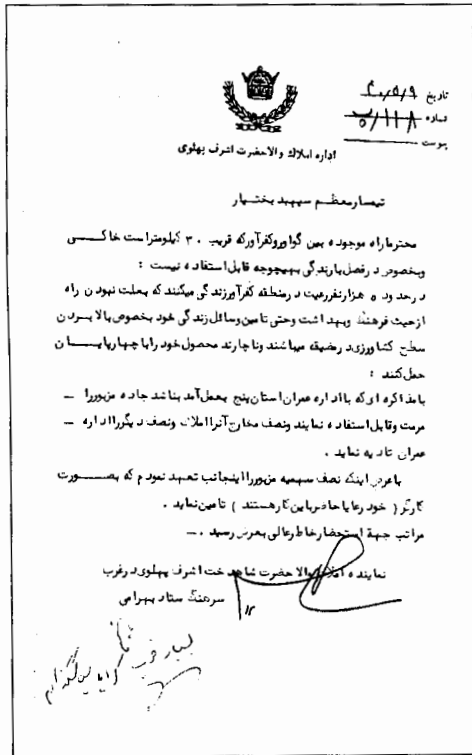 تاریخ ۴۰/۵/۹
شماره ۵/۱۱۸
پیوست
اداره املاک والاحضرت اشرف پهلوی
تیمسار معظم سپهبد بختیار
محترما راه موجوده بین گواور و کفرآور که قریب ۳۰ کیلومتر است خاکسی
و بخصوص در فصل بارندگی بهیچوجه قابل استفاده نیست :
در حدود ۵ هزار نفر رعیت در منطقه کفرآور زندگی میکنند که بعلت نبودن راه
از حیث فرهنگ و بهداشت و حتی تامین وسائل زندگی خود بخصوص بالا بردن
سطح کشاورزی در مضیقه میباشند و ناچارند محصول خود را با چهارپایان
حمل کنند :
با مذاکره ای که با اداره عمران استان پنج بعمل آمد بنا شد جاده مزبور را ـ
مرمت و قابل استفاده نمایند و نصف مخارج آنرا املاک و نصف دیگر را اداره ـ
عمران تادیه نماید .
با عرض اینکه نصف سهمیه مزبور را اینجانب تعهد نمودم که بصورت
کارگر ( خود رعایا حاضر باین کار هستند ) تامین نماید .
مراتب جهة استحضار خاطر عالی بعرض رسید . ـ
نماینده املاک والاحضرت شاهدخت اشرف پهلوی در غرب
سرهنگ ستاد بهرامی
بسیار خوب